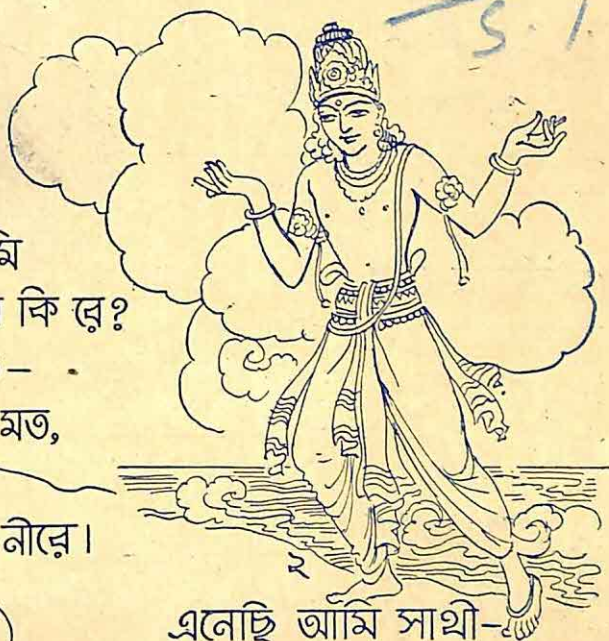 S. 1
মি
কি রে?
–
মত,
নীরে।
২
এনেছি আমি সাথী–